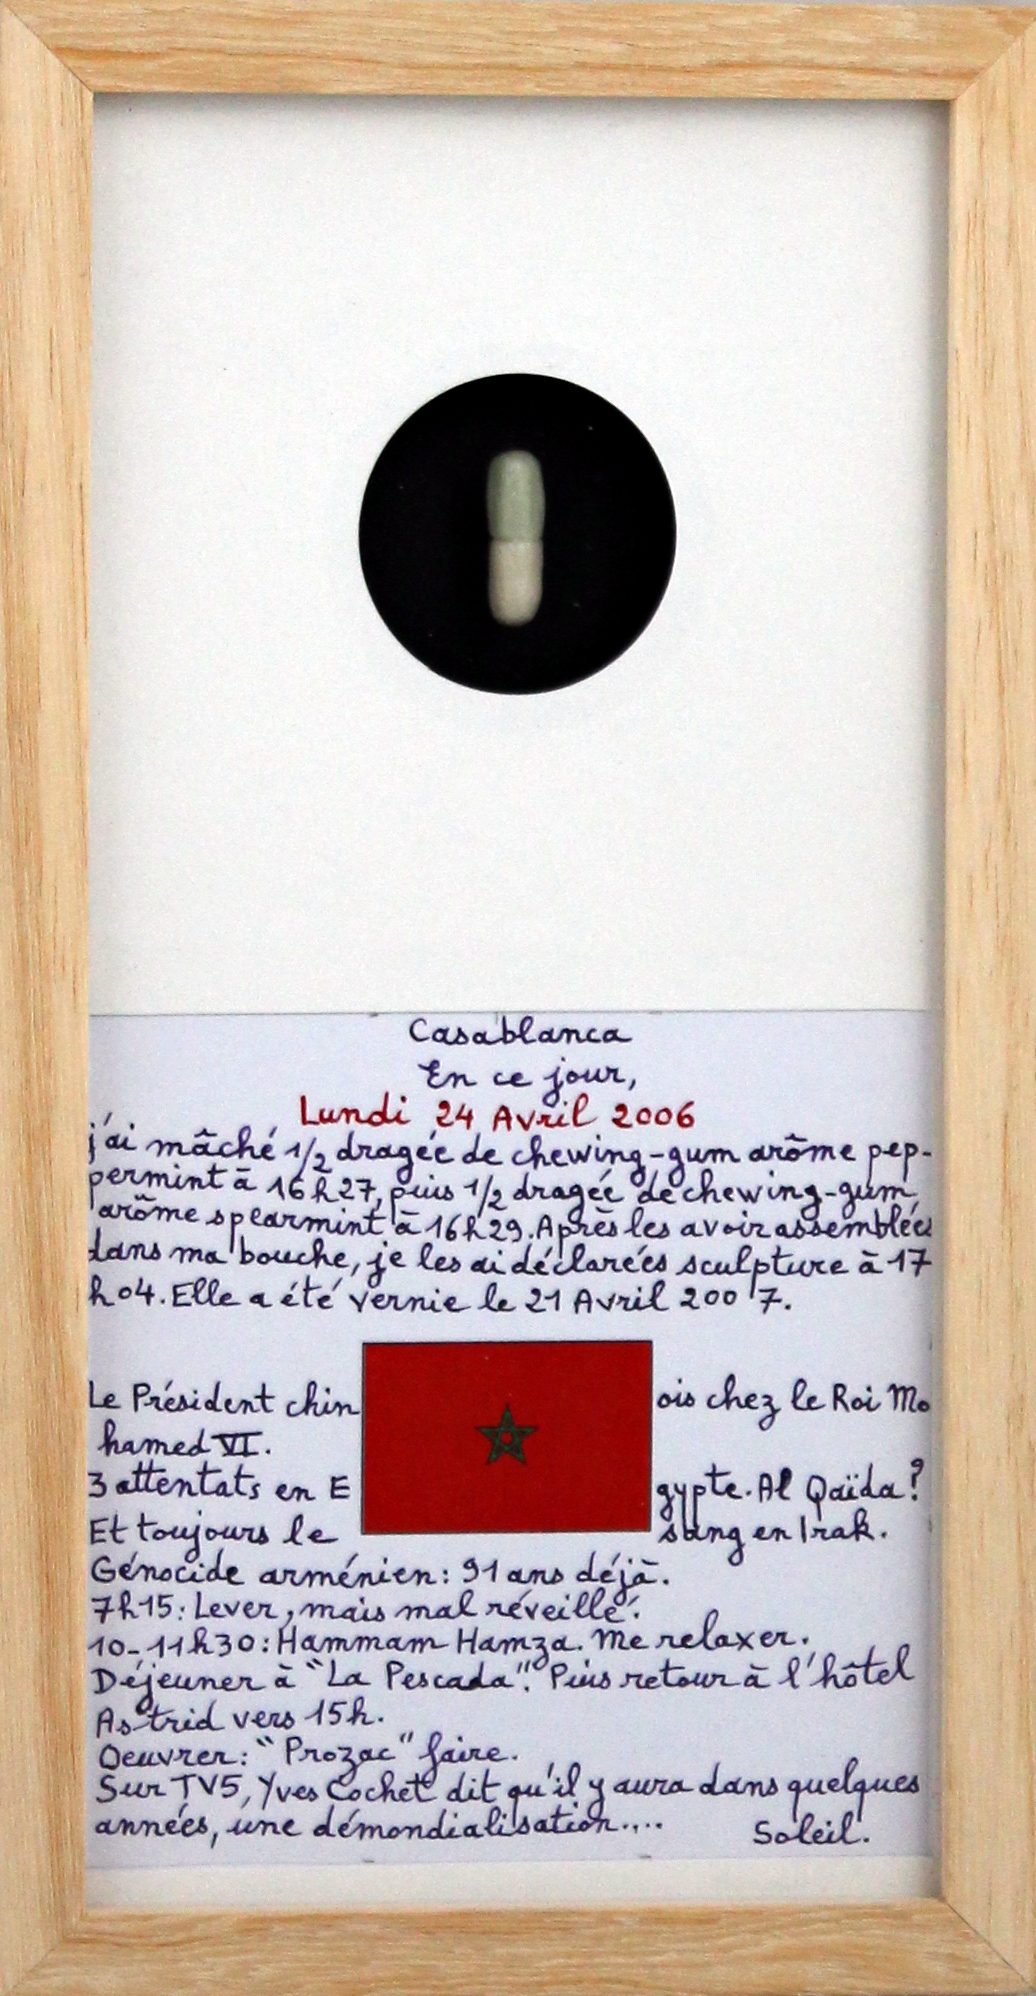 Casablanca
En ce jour,
Lundi 24 Avril 2006
j'ai mâché 1/2 dragée de chewing-gum arôme pep-
permint à 16h27, puis 1/2 dragée de chewing-gum
arôme spearmint à 16h29. Après les avoir assemblées
dans ma bouche, je les ai déclarées sculpture à 17
h04. Elle a été vernie le 21 Avril 2007.
Le Président chin ois chez le Roi Mo
hamed VI.
3 attentats en E gypte. Al Qaïda?
Et toujours le sang en Irak.
Génocide arménien: 91 ans déjà.
7h15: Lever, mais mal réveillé.
10-11h30: Hammam Hamza. Me relaxer.
Déjeuner à "La Pescada". Puis retour à l'hôtel
Astrid vers 15h.
Oeuvrer: "Prozac" faire.
Sur TV5, Yves Cochet dit qu'il y aura dans quelques
années, une démondialisation.... Soleil.